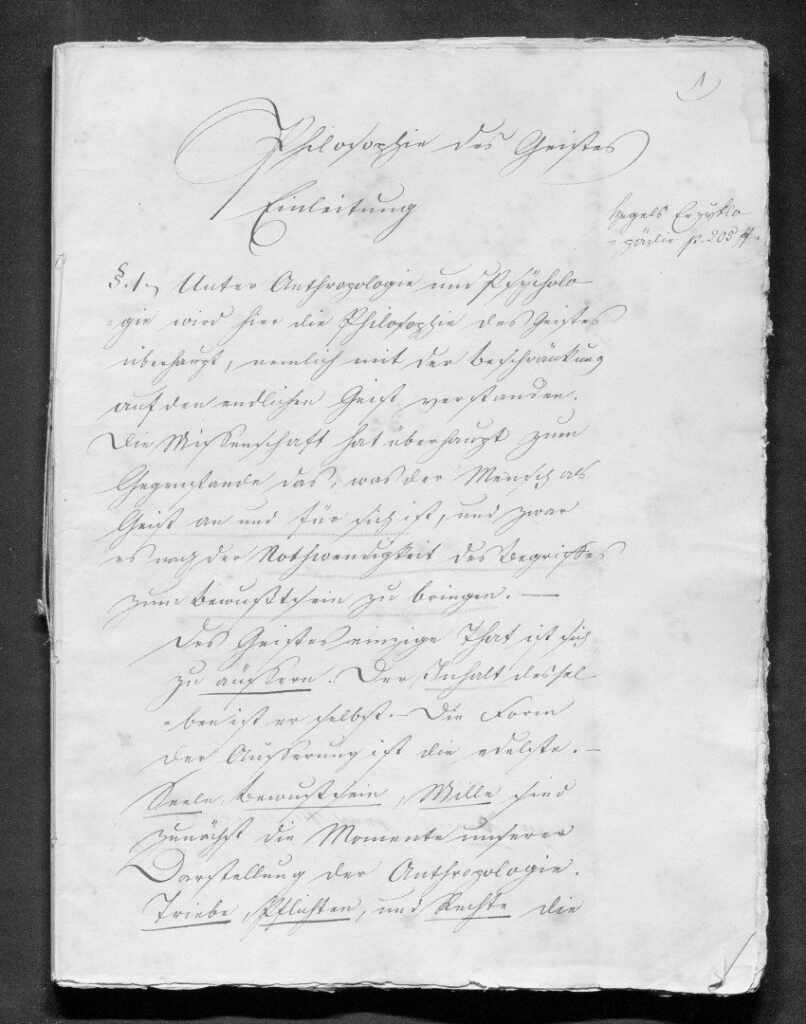 1
Philosophie des Geistes
Einleitung
Hegels Encyklo
-pädie p. 205 ff.
§. 1. Unter Anthropologie und Psycholo
-gie wird hier die Philosophie des Geistes
überhaupt, nemlich mit der Beschränkung
auf den endlichen Geist verstanden.
Die Wissenschaft hat überhaupt zum
Gegenstande das, was der Mensch als
Geist an und für sich ist, und zwar
es nach der Nothwendigkeit des Begriffes
zum Bewußtsein zu bringen. —
Des Geistes einzige That ist sich
zu äussern. Der Inhalt dessel
-ben ist er selbst. – Die Form
der Äusserung ist die edelste. –
Seele, Bewustsein, Wille sind
zunächst die Momente unserer
Darstellung der Anthropologie.
Triebe, Pflichten, und Rechte die